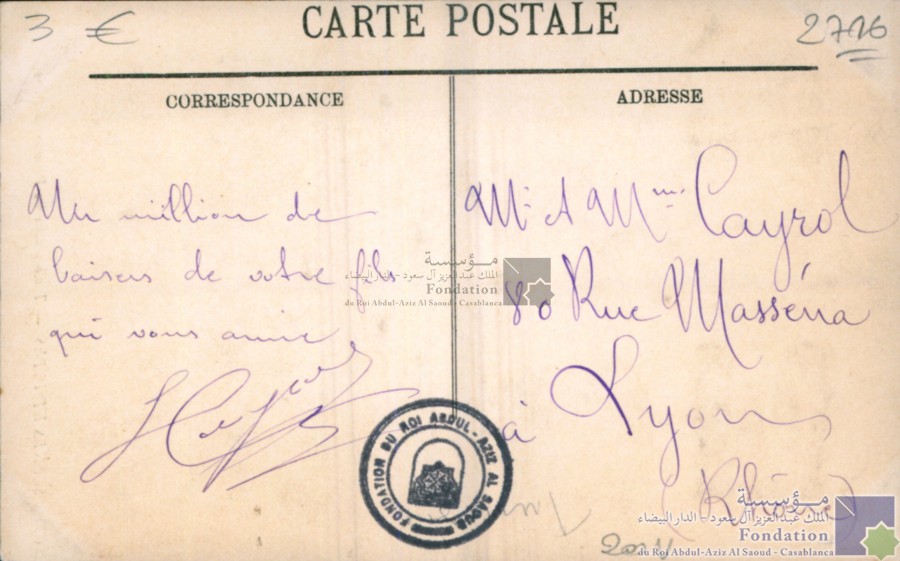 3 €
CARTE POSTALE
2716
CORRESPONDANCE
ADRESSE
Un million de
baisers de votre fils
qui vous aime
Mr & Mme Cayrol
80 Rue Masséna
à Lyon
(Rhône)
مؤسسة
الملك عبد العزيز آل سعود - الدار البيضاء
Fondation
du Roi Abdul-Aziz Al Saoud - Casablanca
FONDATION DU ROI ABDUL-AZIZ AL SAOUD
مؤسسة
الملك عبد العزيز آل سعود - الدار البيضاء
Fondation
du Roi Abdul-Aziz Al Saoud - Casablanca